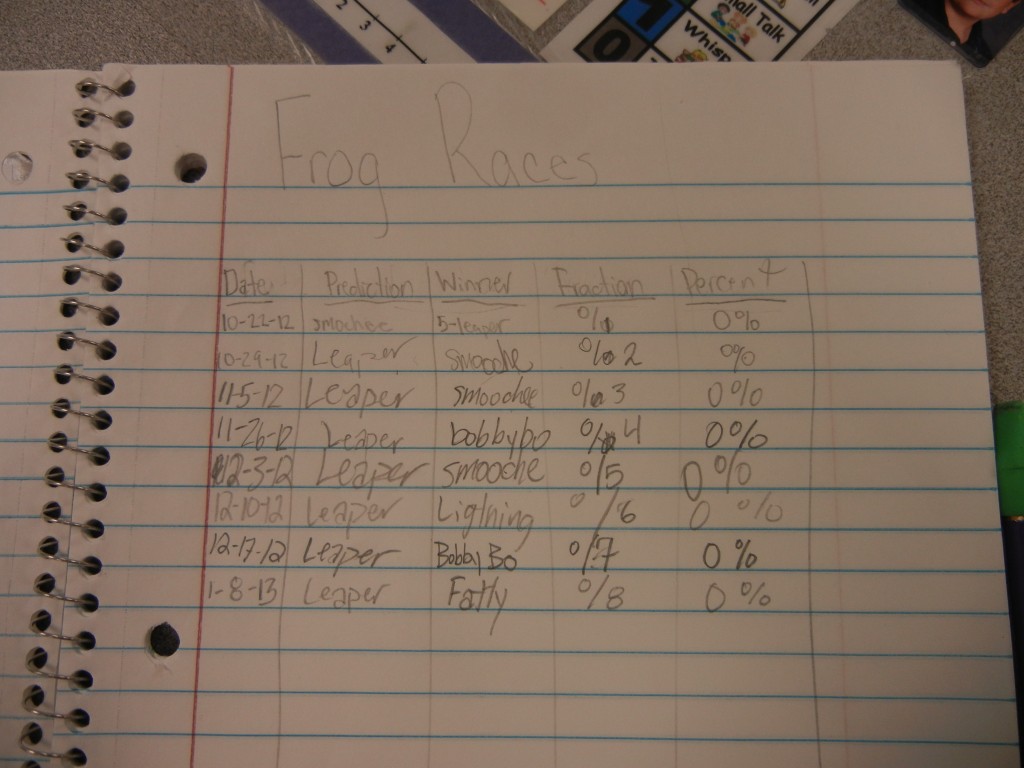 2 3 4
1 0
Small Talk
Whisp
Frog Races
Date Prediction Winner Fraction Percent
10-22-12 smoochee 5-leaper 0/1 0%
10-29-12 Leaper smooche 0/2 0%
11-5-12 Leaper smoochee 0/3 0%
11-26-12 Leaper bobbybo 0/4 0%
12-3-12 Leaper smooche 0/5 0%
12-10-12 Leaper Ligtning 0/6 0%
12-17-12 Leaper Bobby Bo 0/7 0%
1-8-13 Leaper Fatty 0/8 0%